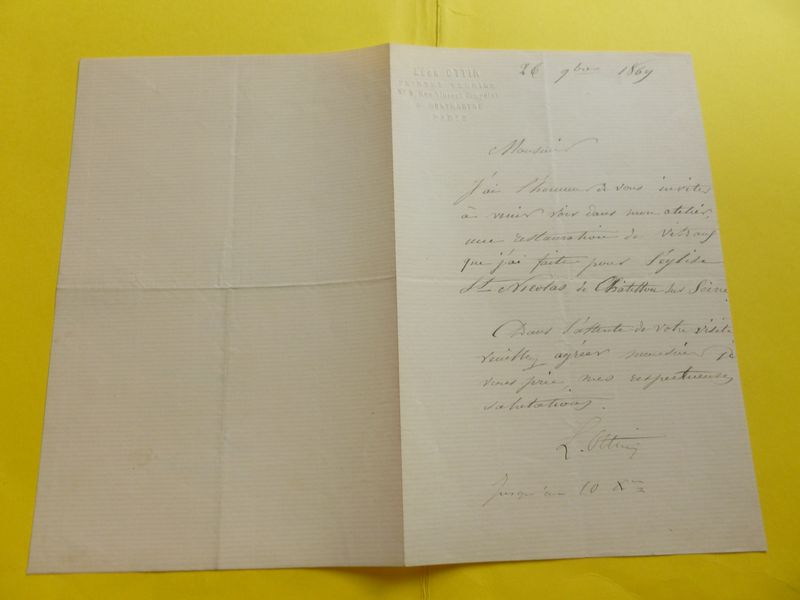 LÉON OTTIN
PEINTRE VERRIER
PARIS
26 9bre 1869
Monsieur
J'ai l'honneur de vous inviter
à venir voir dans mon atelier,
une restauration de vitraux
que j'ai faite pour l'église
St Nicolas de Châtillon sur Seine
Dans l'attente de votre visite
veuillez agréer monsieur je
vous prie, mes respectueuses
salutations.
L. Ottin
Jusqu'au 10 Xbre